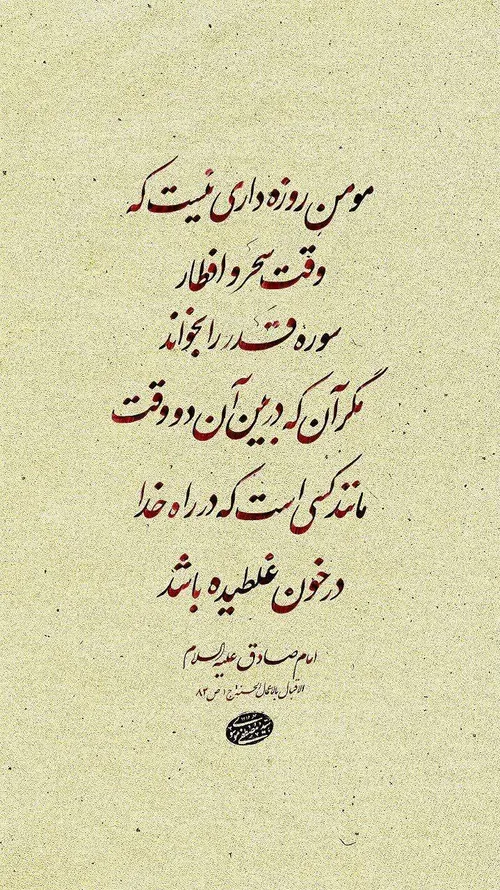 مومن روزه داری نیست که
وقت سحر و افطار
سوره قدر را بخواند
مگر آن که در بین آن دو وقت
مانند کسی است که در راه خدا
در خون غلطیده باشد
امام صادق علیه السلام
الاقبال بالاعمال الحسنه ج۱ ص ۸۳